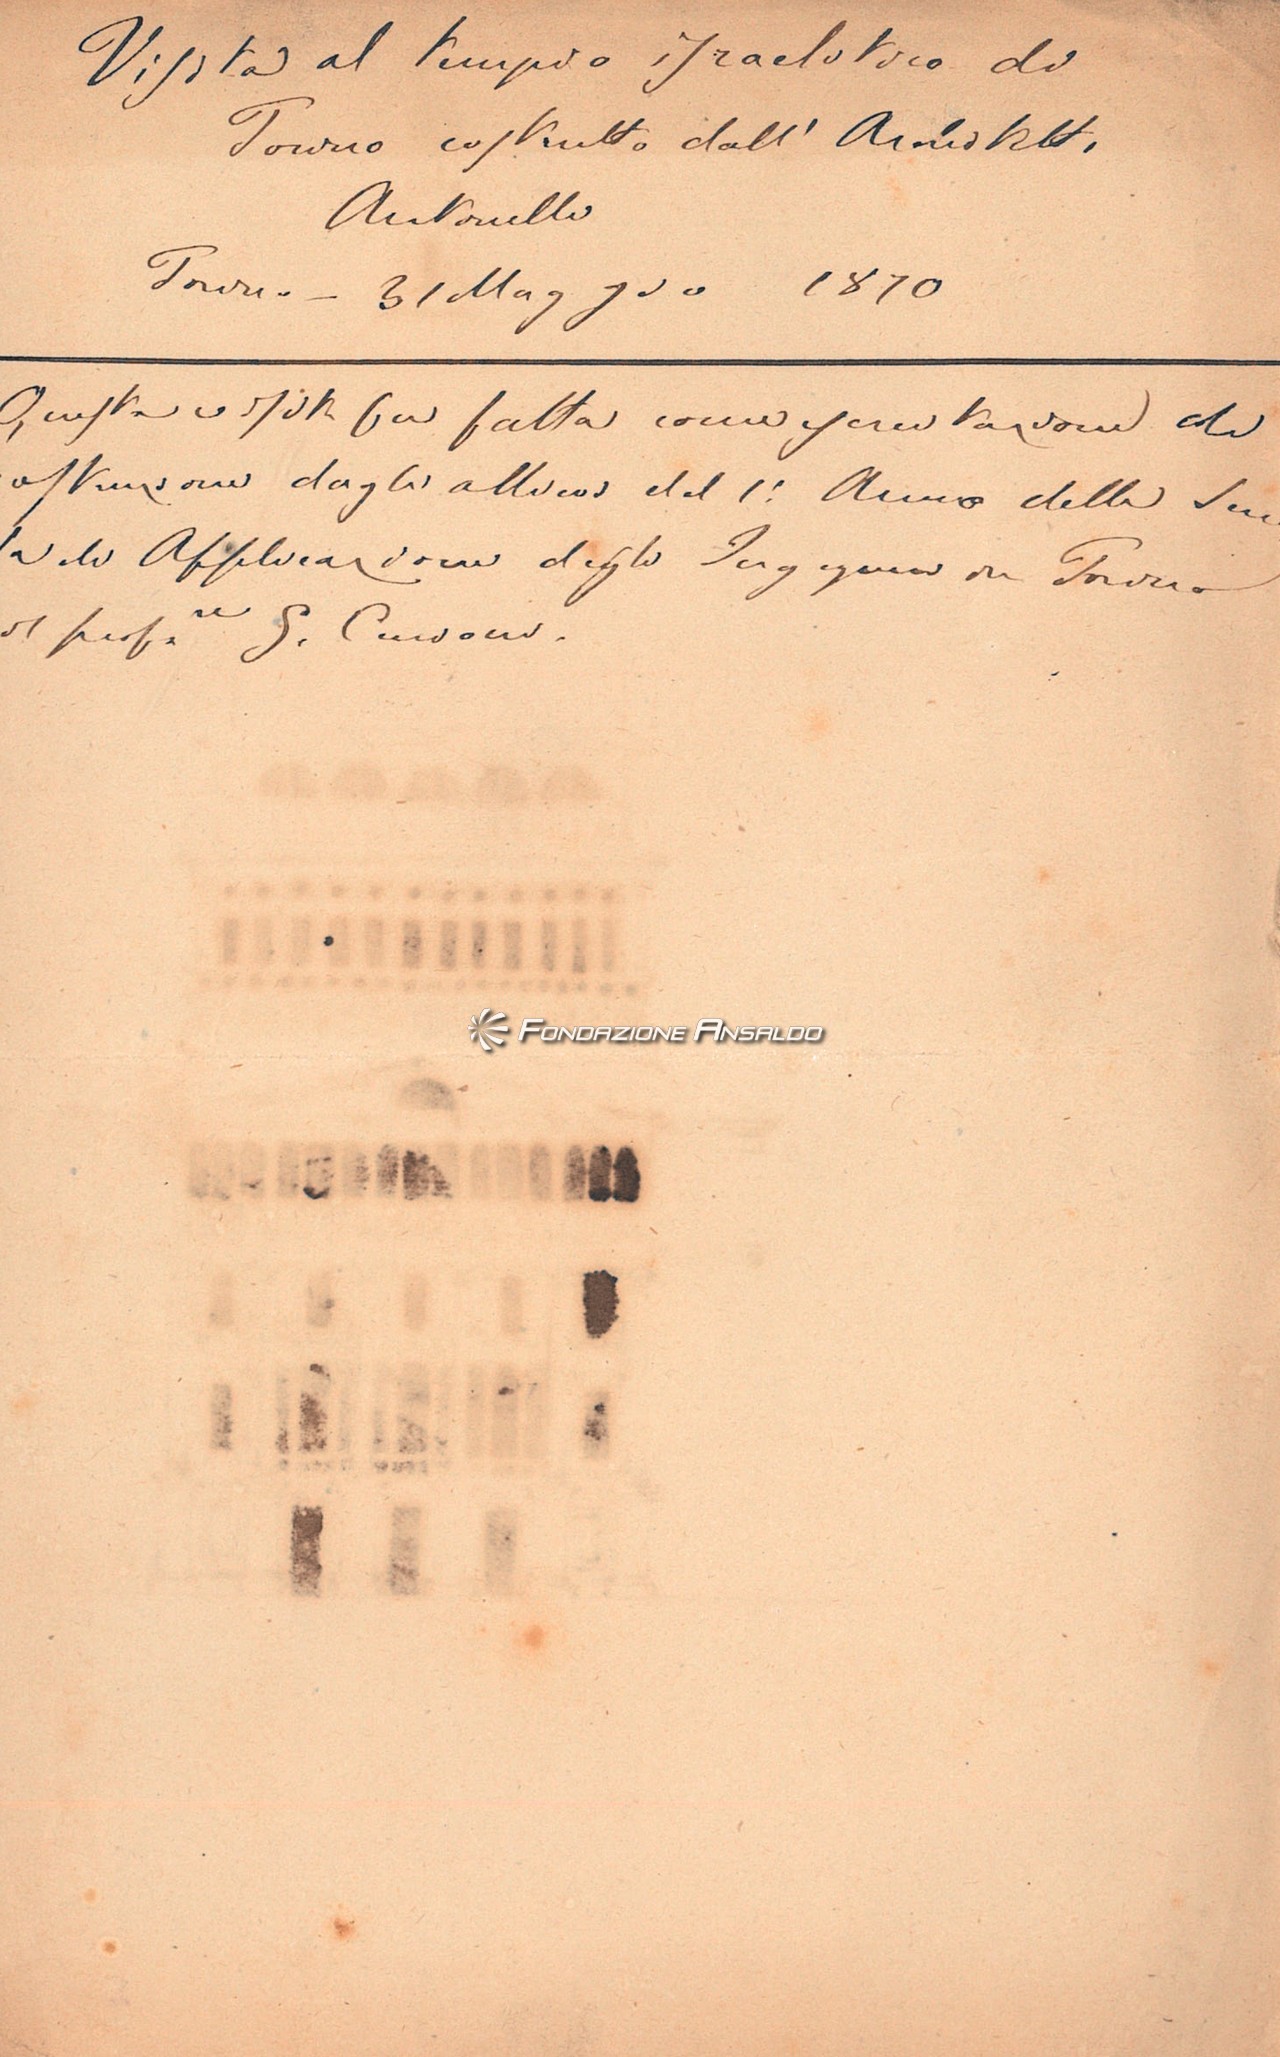 Visita al tempio israelitico di
Torino costrutto dall' Architetto
Antonelli
Torino - 31 Maggio 1870
Questa visita fu fatta come esercitazione di
costruzioni dagli allievi del 1.° Anno della Scuo
la di Applicazione degli Ingegneri in Torino
prof.re G. Curioni.
FONDAZIONE ANSALDO